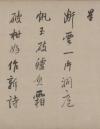 星
斷雲一片洞庭
帆玉破鱸魚霜
破柑好作新詩